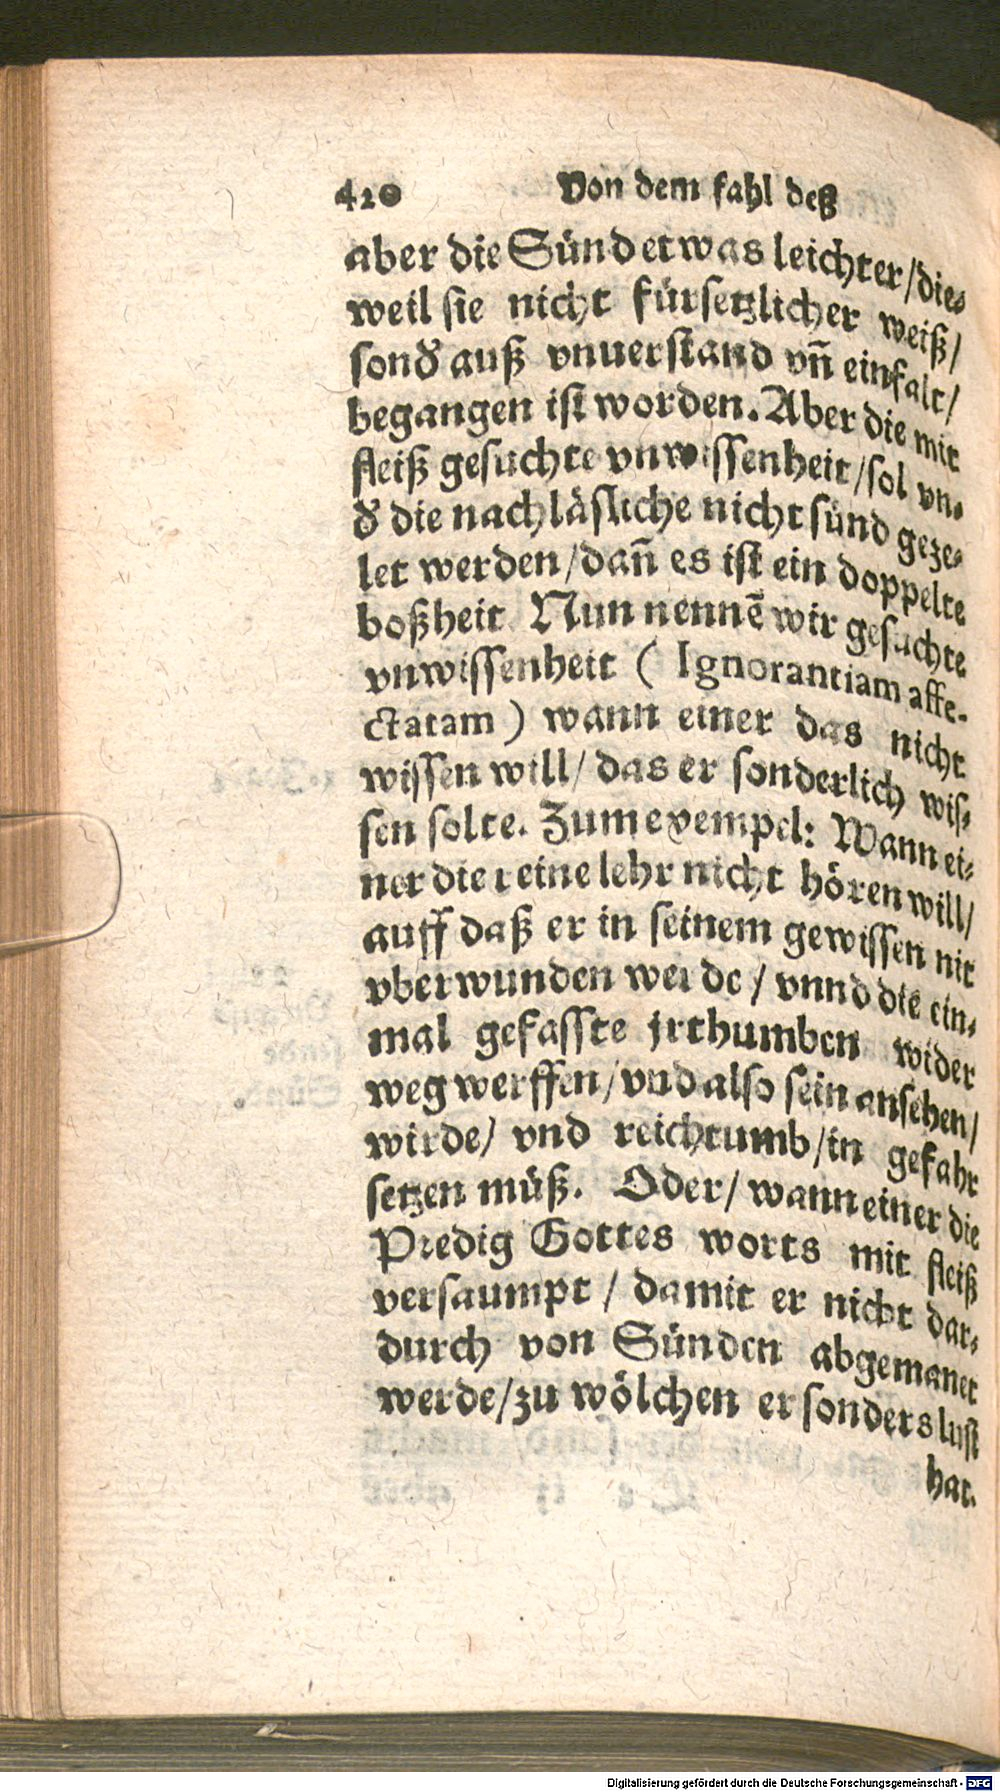 420 Von dem fahl deß
aber die Sünd etwas leichter/die⸗
weil sie nicht fürsetzlicher weiß/
sond' auß vnuerstand vn̄ einfalt/
begangen ist worden. Aber die mit
fleiß gesuchte vnwissenheit/sol vn⸗
d' die nachläsliche nicht sünd geze⸗
let werden/dan̄ es ist ein doppelte
boßheit. Nun nennē wir gesuchte
vnwissenheit ( Ignorantiam affe-
ctatam ) wann einer das nicht
wissen will/ das er sonderlich wis⸗
sen solte. Zum exempel: Wann ei⸗
ner die reine lehr nicht hören will/
auff daß er in seinem gewissen nit
vberwunden werde / vnnd die ein⸗
mal gefasste jrthumben wider
weg werffen/vnd also sein ansehen/
wirde/ vnd reichtumb/in gefahr
setzen müß. Oder/ wann einer die
Predig Gottes worts mit fleiß
versaumpt / damit er nicht dar⸗
durch von Sünden abgemanet
werde/zu wölchen er sonders lust
hat.
Digitalisierung gefördert durch die Deutsche Forschungsgemeinschaft - DFG